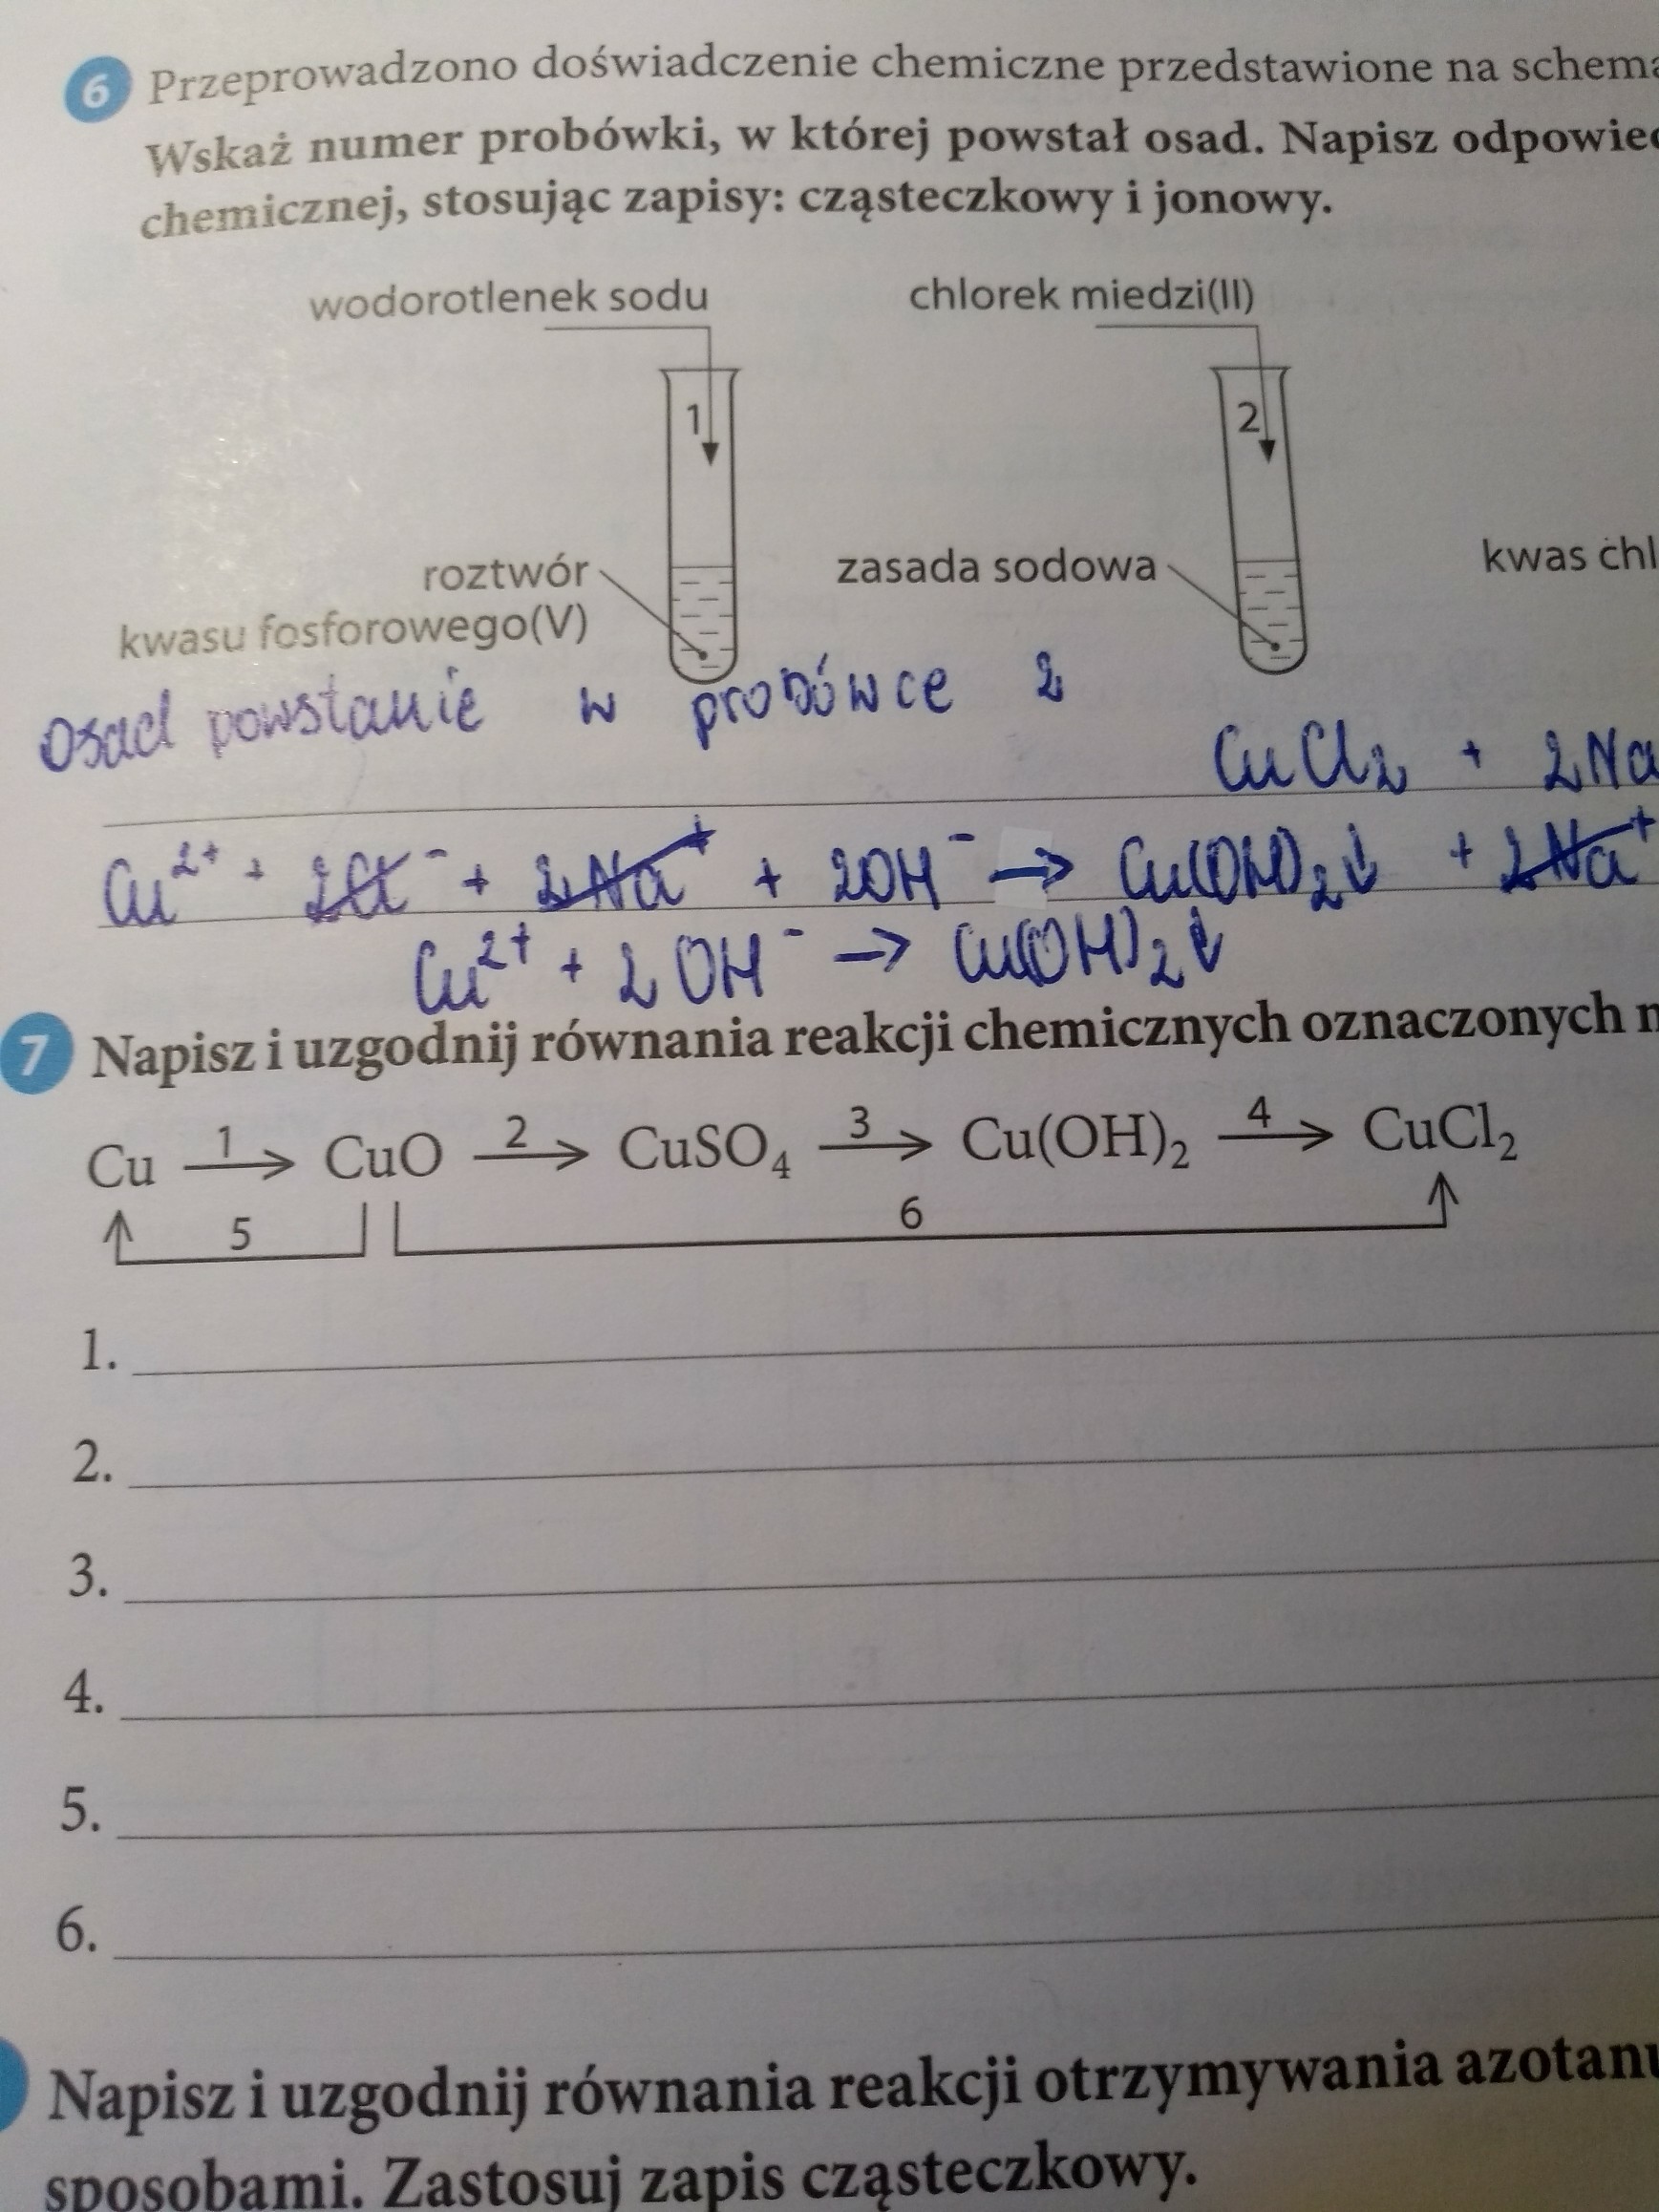 6 Przeprowadzono doświadczenie chemiczne przedstawione na schema
Wskaż numer probówki, w której powstał osad. Napisz odpowied
chemicznej, stosując zapisy: cząsteczkowy i jonowy.
wodorotlenek sodu
chlorek miedzi(II)
1
2
roztwór
kwasu fosforowego(V)
zasada sodowa
kwas chl
Osad powstanie w probówce 2
CuCl₂ + 2Na
Cu²⁺ + 2Cl⁻ + 2Na⁺ + 2OH⁻ → Cu(OH)₂↓ + 2Na⁺
Cu²⁺ + 2OH⁻ → Cu(OH)₂↓
7 Napisz i uzgodnij równania reakcji chemicznych oznaczonych n
Cu 1→ CuO 2→ CuSO₄ 3→ Cu(OH)₂ 4→ CuCl₂
5
6
1.
2.
3.
4.
5.
6.
Napisz i uzgodnij równania reakcji otrzymywania azotanu
sposobami. Zastosuj zapis cząsteczkowy.